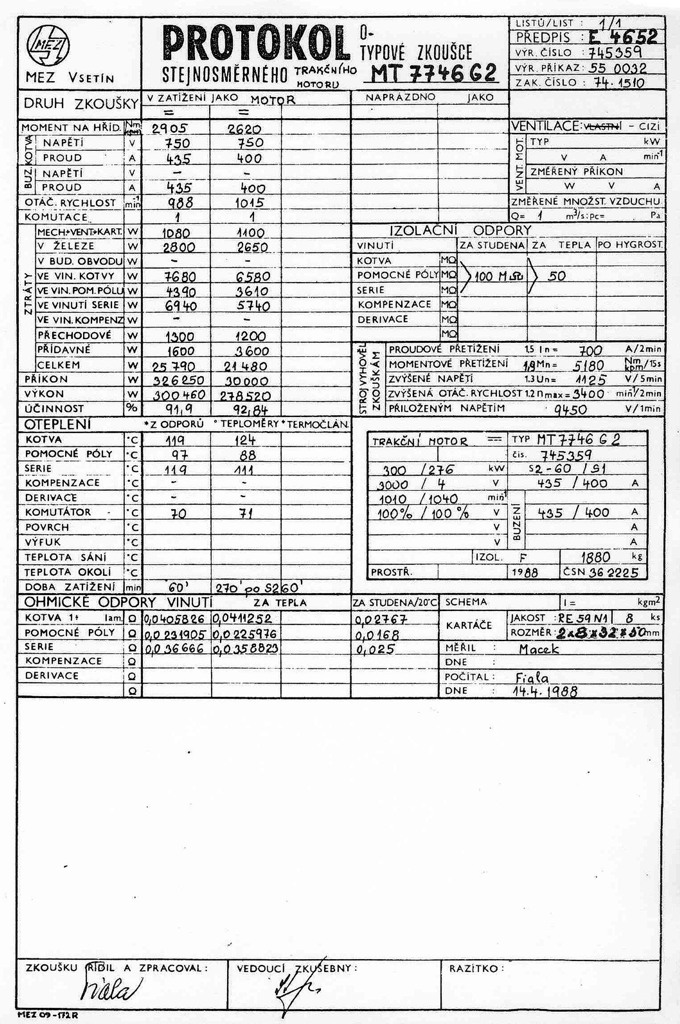 MEZ
MEZ VSETÍN
PROTOKOL O-TYPOVÉ ZKOUŠCE
STEJNOSMĚRNÉHO TRAKČNÍHO MOTORU MT 7746 G2
LISTŮ/LIST : 1/1
PŘEDPIS : E 4652
VÝR. ČÍSLO : 745359
VÝR. PŘÍKAZ: 55 0032
ZAK. ČÍSLO : 74-1510
DRUH ZKOUŠKY V ZATÍŽENÍ JAKO MOTOR NAPRÁZDNO JAKO
= =
MOMENT NA HŘÍD. Nm kpm 2905 2620
KOTVA NAPĚTÍ V 750 750
PROUD A 435 400
BUZ. NAPĚTÍ V - -
PROUD A 435 400
OTÁČ. RYCHLOST min-1 988 1015
KOMUTACE 1 1
VENTILACE: VLASTNÍ - CIZÍ
VENT. MOT. TYP kW
V A min-1
ZMĚŘENÝ PŘÍKON
W V A
ZMĚŘENÉ MNOŽST. VZDUCHU
Q= 1 m³/s: pc= Pa
ZTRÁTY MECH+VENT+KART. W 1080 1100
V ŽELEZE W 2800 2650
V BUD. OBVODU W - -
VE VIN. KOTVY W 7680 6580
VE VIN. POM. PÓLU W 4390 3610
VE VINUTÍ SERIE W 6940 5740
VE VIN. KOMPENZ W - -
PŘECHODOVÉ W 1300 1200
PŘÍDAVNÉ W 1600 3600
CELKEM W 25 790 21 480
PŘÍKON W 326250 30000
VÝKON W 300460 278520
ÚČINNOST % 91,9 92,84
IZOLAČNÍ ODPORY
VINUTÍ ZA STUDENA ZA TEPLA PO HYGROST.
KOTVA MΩ
POMOCNÉ PÓLY MΩ 100 MΩ 50
SERIE MΩ
KOMPENZACE MΩ
DERIVACE MΩ
MΩ
STROJ VYHOVĚL ZKOUŠKÁM
PROUDOVÉ PŘETÍŽENÍ 1,5 In= 700 A/2min
MOMENTOVÉ PŘETÍŽENÍ 1,9Mn= 5180 Nm kpm/15s
ZVÝŠENÉ NAPĚTÍ 1.3Un= 1125 V/5min
ZVÝŠENÁ OTÁČ. RYCHLOST 1.2nmax= 3400 min-1/2min
PŘILOŽENÝM NAPĚTÍM 9450 V/1min
OTEPLENÍ *Z ODPORŮ *TEPLOMĚRY *TERMOČLÁN.
KOTVA °C 119 124
POMOCNÉ PÓLY °C 97 88
SERIE °C 119 111
KOMPENZACE °C - -
DERIVACE °C - -
KOMUTÁTOR °C 70 71
POVRCH °C
VÝFUK °C
TEPLOTA SÁNÍ °C
TEPLOTA OKOLÍ °C
DOBA ZATÍŽENÍ min 60' 270' po S2 60'
TRAKČNÍ MOTOR == TYP MT7746 G2
čís. 745359
300 /276 kW S2-60 / S1
3000 / 4 V 435 / 400 A
1010 /1040 min-1
100% /100 % V BUZENÍ 435 / 400 A
V A
V A
IZOL. F 1880 kg
PROSTŘ. 1988 ČSN 36 2225
OHMICKÉ ODPORY VINUTÍ ZA TEPLA ZA STUDENA/20°C
KOTVA 1÷ lam. Ω 0,0405826 0,0411252 0,02767
POMOCNÉ PÓLY Ω 0,0231905 0,0225976 0,0168
SERIE Ω 0,036666 0,0358823 0,025
KOMPENZACE Ω
DERIVACE Ω
Ω
SCHEMA I = kgm2
KARTÁČE JAKOST : RE 59 N1 8 ks
ROZMĚR: 2x8x32x50mm
MĚŘIL : Macek
DNE :
POČÍTAL : Fiala
DNE : 14.4. 1988
ZKOUŠKU ŘÍDIL A ZPRACOVAL: VEDOUCÍ ZKUŠEBNY: RAZÍTKO:
Fiala
MEZ 09-172 R